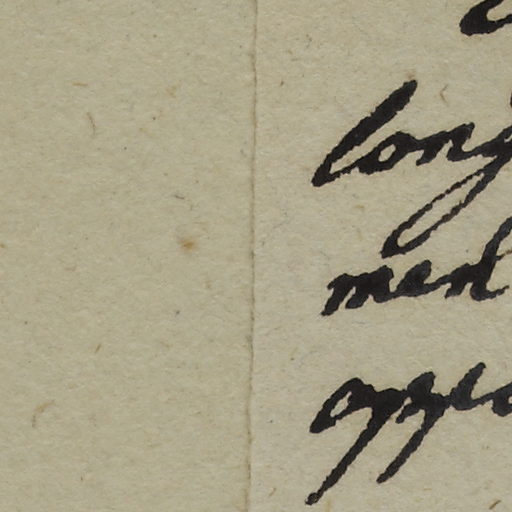 long
men
oppo